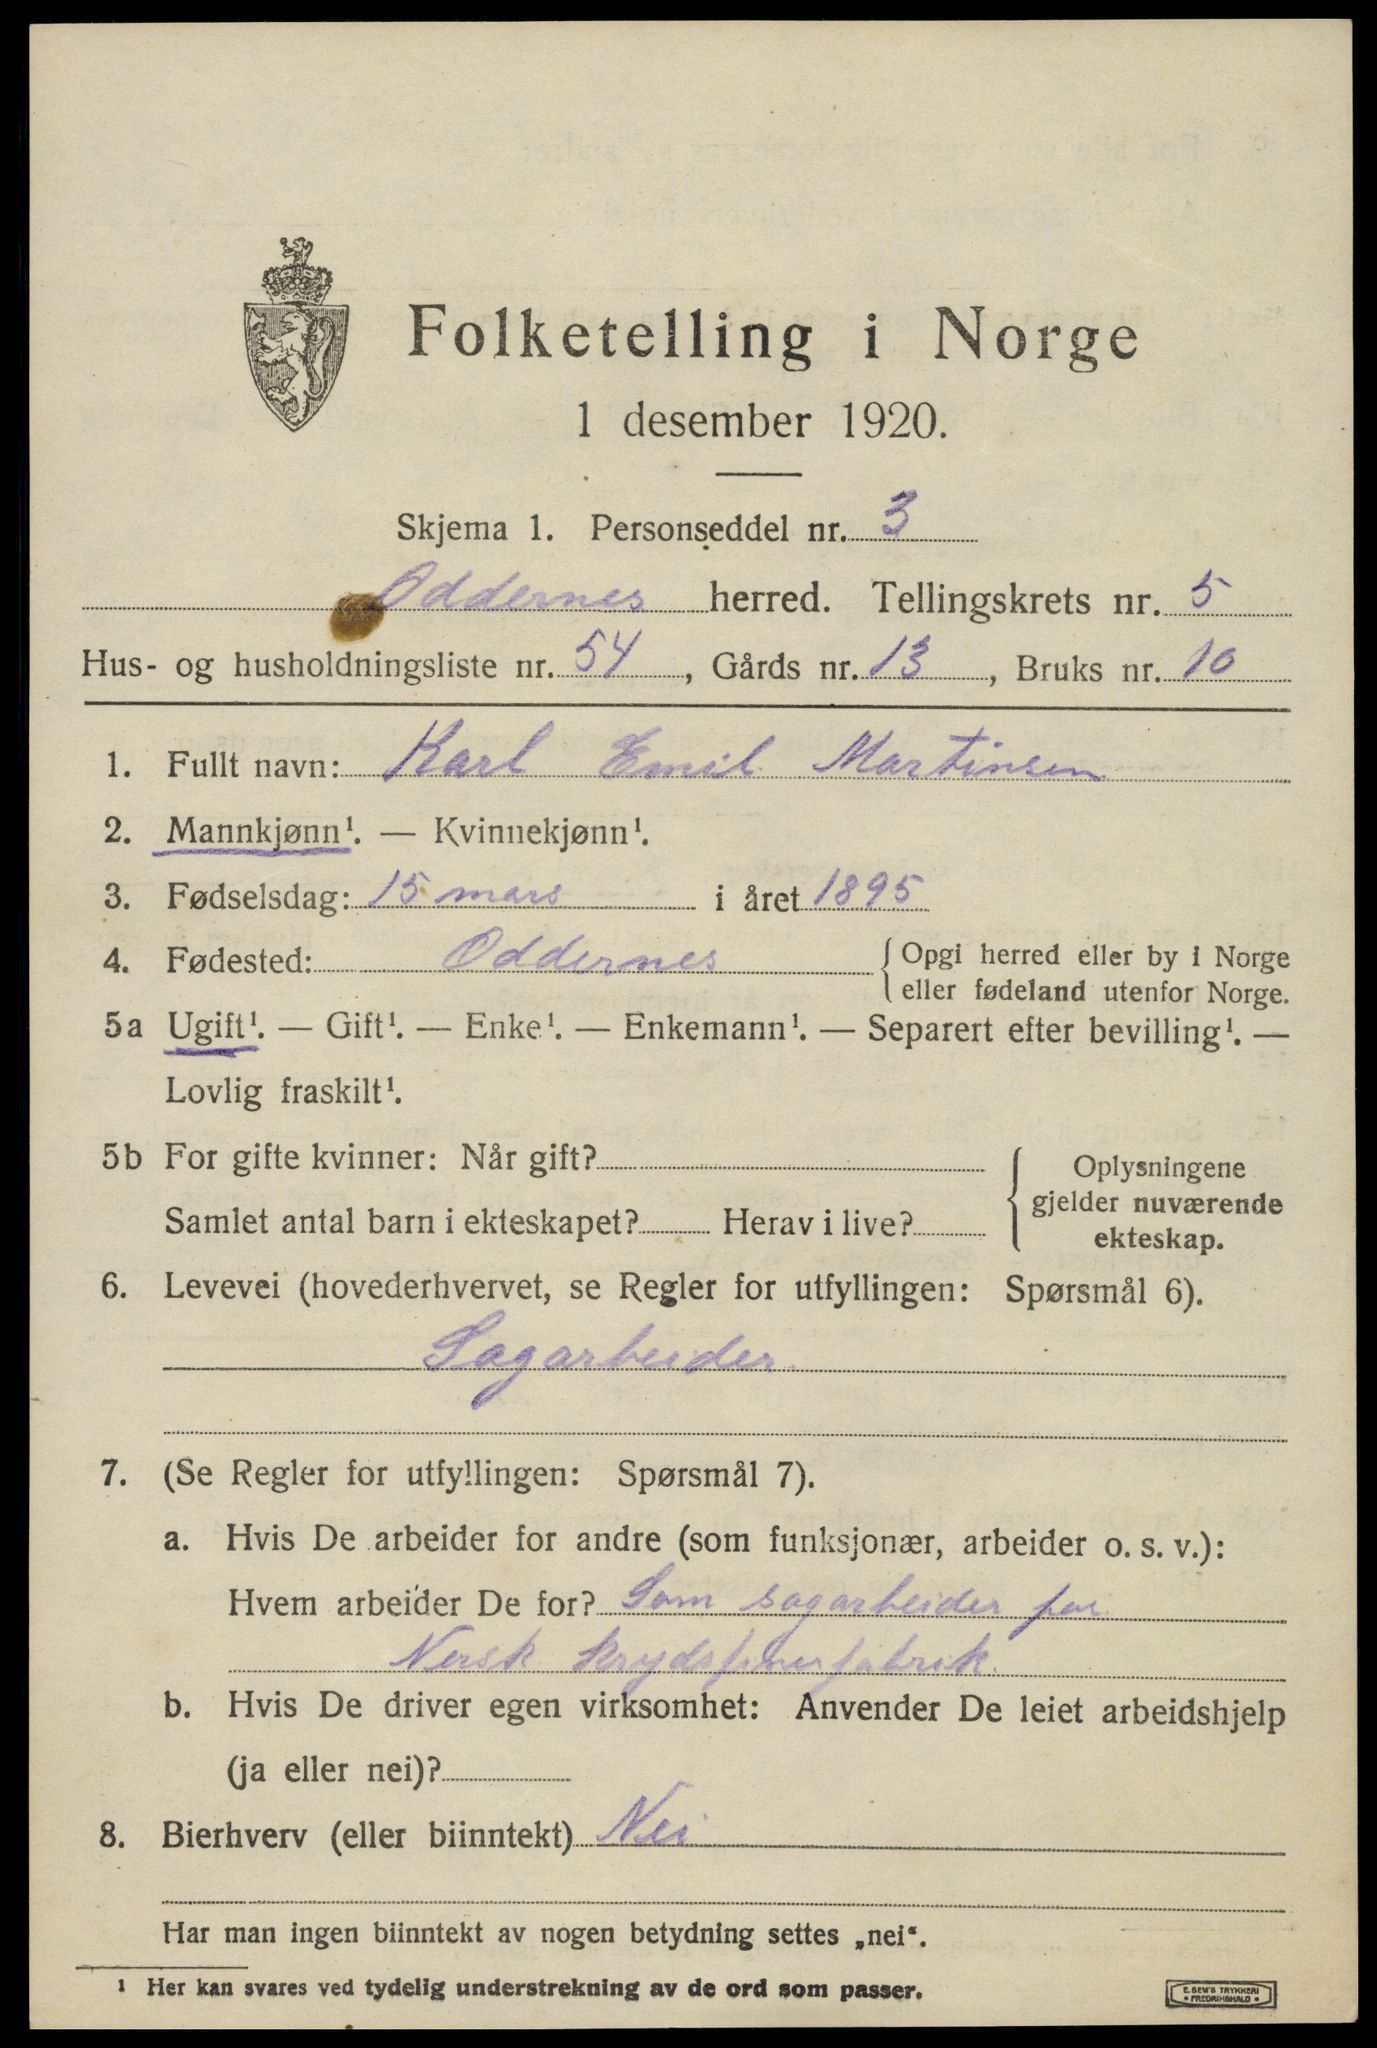 Folketelling i Norge
1 desember 1920.
Skjema 1. Personseddel nr. 3
Oddernes herred. Tellingskrets nr. 5
Hus- og husholdningsliste nr. 54, Gårds nr. 13, Bruks nr. 10
1. Fullt navn: Karl Emil Martinsen
2. Mannkjønn¹. — Kvinnekjønn¹.
3. Fødselsdag: 15 mars i året 1895
4. Fødested: Oddernes { Opgi herred eller by i Norge
eller fødeland utenfor Norge.
5a Ugift¹. — Gift¹. — Enke¹. — Enkemann¹. — Separert efter bevilling¹. —
Lovlig fraskilt¹.
5b For gifte kvinner: Når gift? { Oplysningene
gjelder nuværende
Samlet antal barn i ekteskapet? Herav i live?
ekteskap.
6. Levevei (hovederhvervet, se Regler for utfyllingen: Spørsmål 6).
Sagarbeider.
7. (Se Regler for utfyllingen: Spørsmål 7).
a. Hvis De arbeider for andre (som funksjonær, arbeider o. s. v.):
Hvem arbeider De for? Som sagarbeider for
Norsk Krydsfinerfabrik.
b. Hvis De driver egen virksomhet: Anvender De leiet arbeidshjelp
(ja eller nei)?
8. Bierhverv (eller biinntekt) Nei
Har man ingen biinntekt av nogen betydning settes „nei“.
¹ Her kan svares ved tydelig understrekning av de ord som passer.
E. SEM'S TRYKKERI
• FREDRIKSHALD •